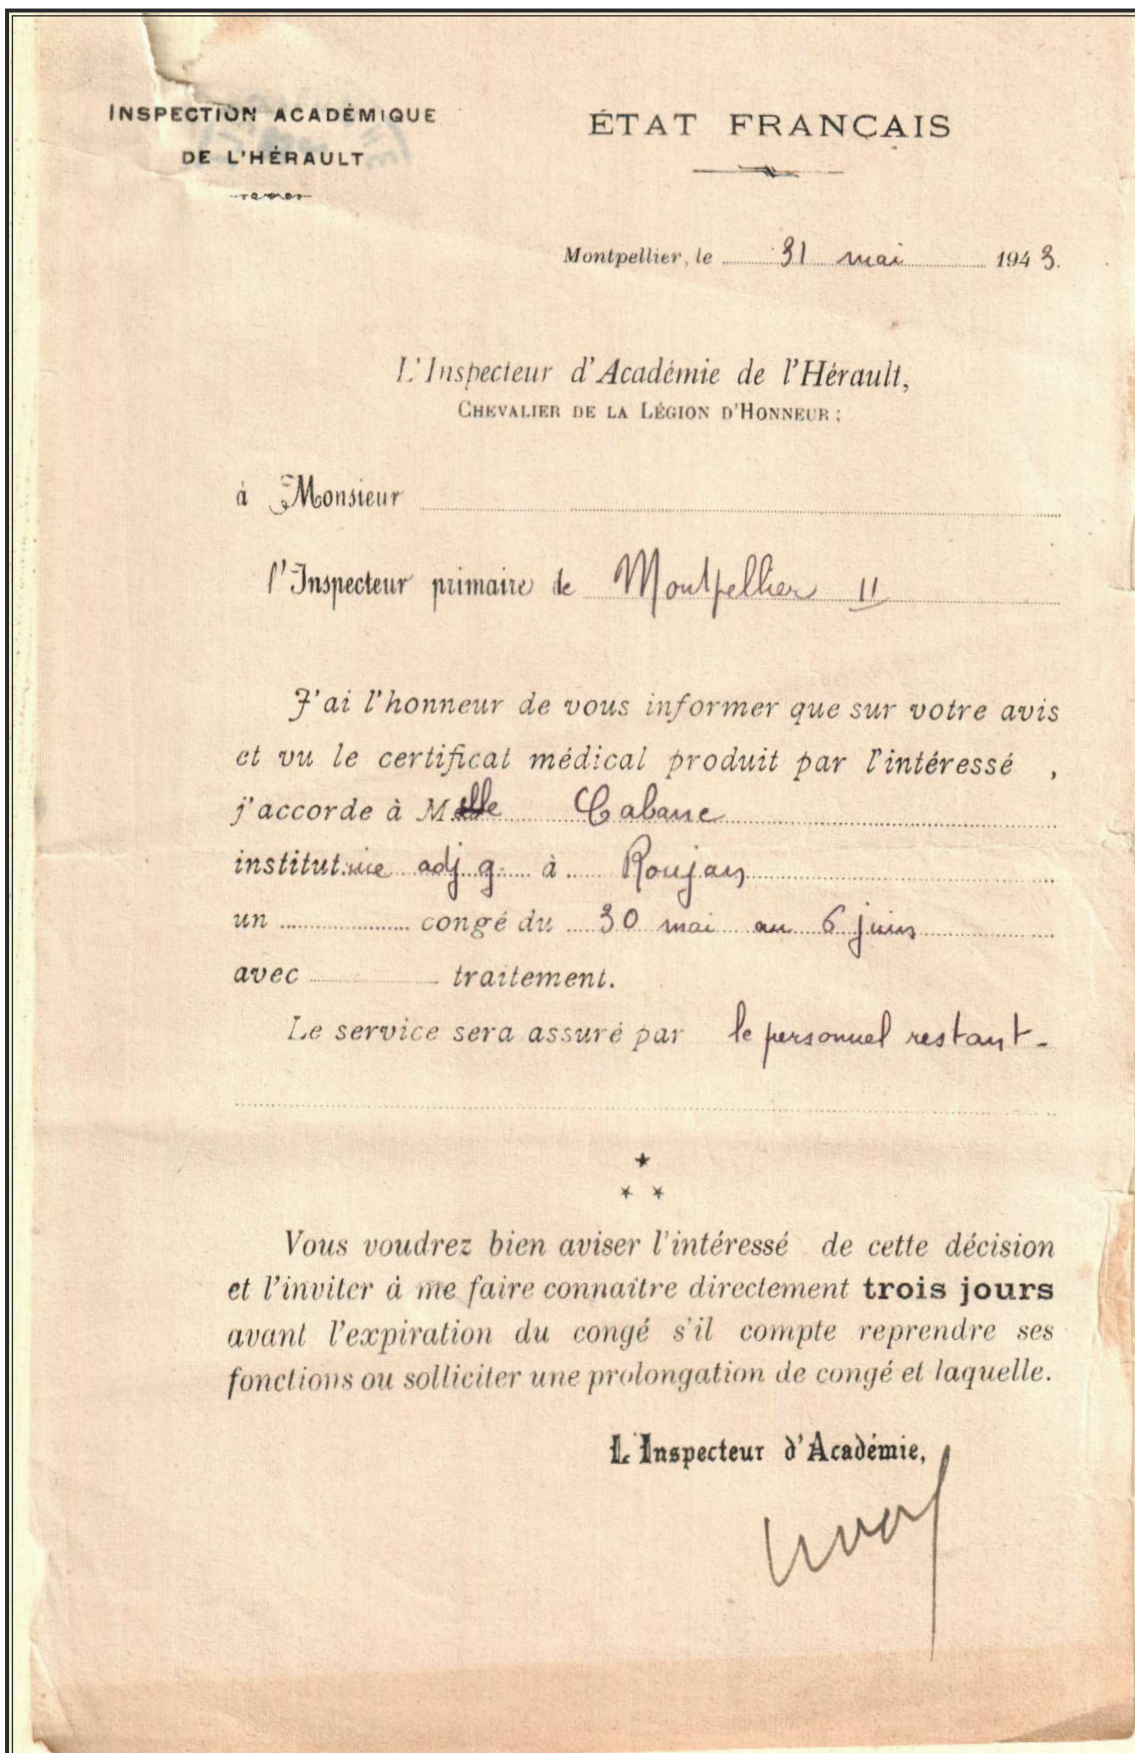 INSPECTION ACADÉMIQUE
DE L'HÉRAULT
ÉTAT FRANÇAIS
Montpellier, le 31 mai 1943.
L'Inspecteur d'Académie de l'Hérault,
CHEVALIER DE LA LÉGION D'HONNEUR ;
à Monsieur
l'Inspecteur primaire de Montpellier II
J'ai l'honneur de vous informer que sur votre avis
et vu le certificat médical produit par l'intéressé ,
j'accorde à Melle Cabane
institutrice adj. g. à Roujan
un congé du 30 mai au 6 juin
avec traitement.
Le service sera assuré par le personnel restant -
Vous voudrez bien aviser l'intéressé de cette décision
et l'inviter à me faire connaître directement trois jours
avant l'expiration du congé s'il compte reprendre ses
fonctions ou solliciter une prolongation de congé et laquelle.
L'Inspecteur d'Académie,